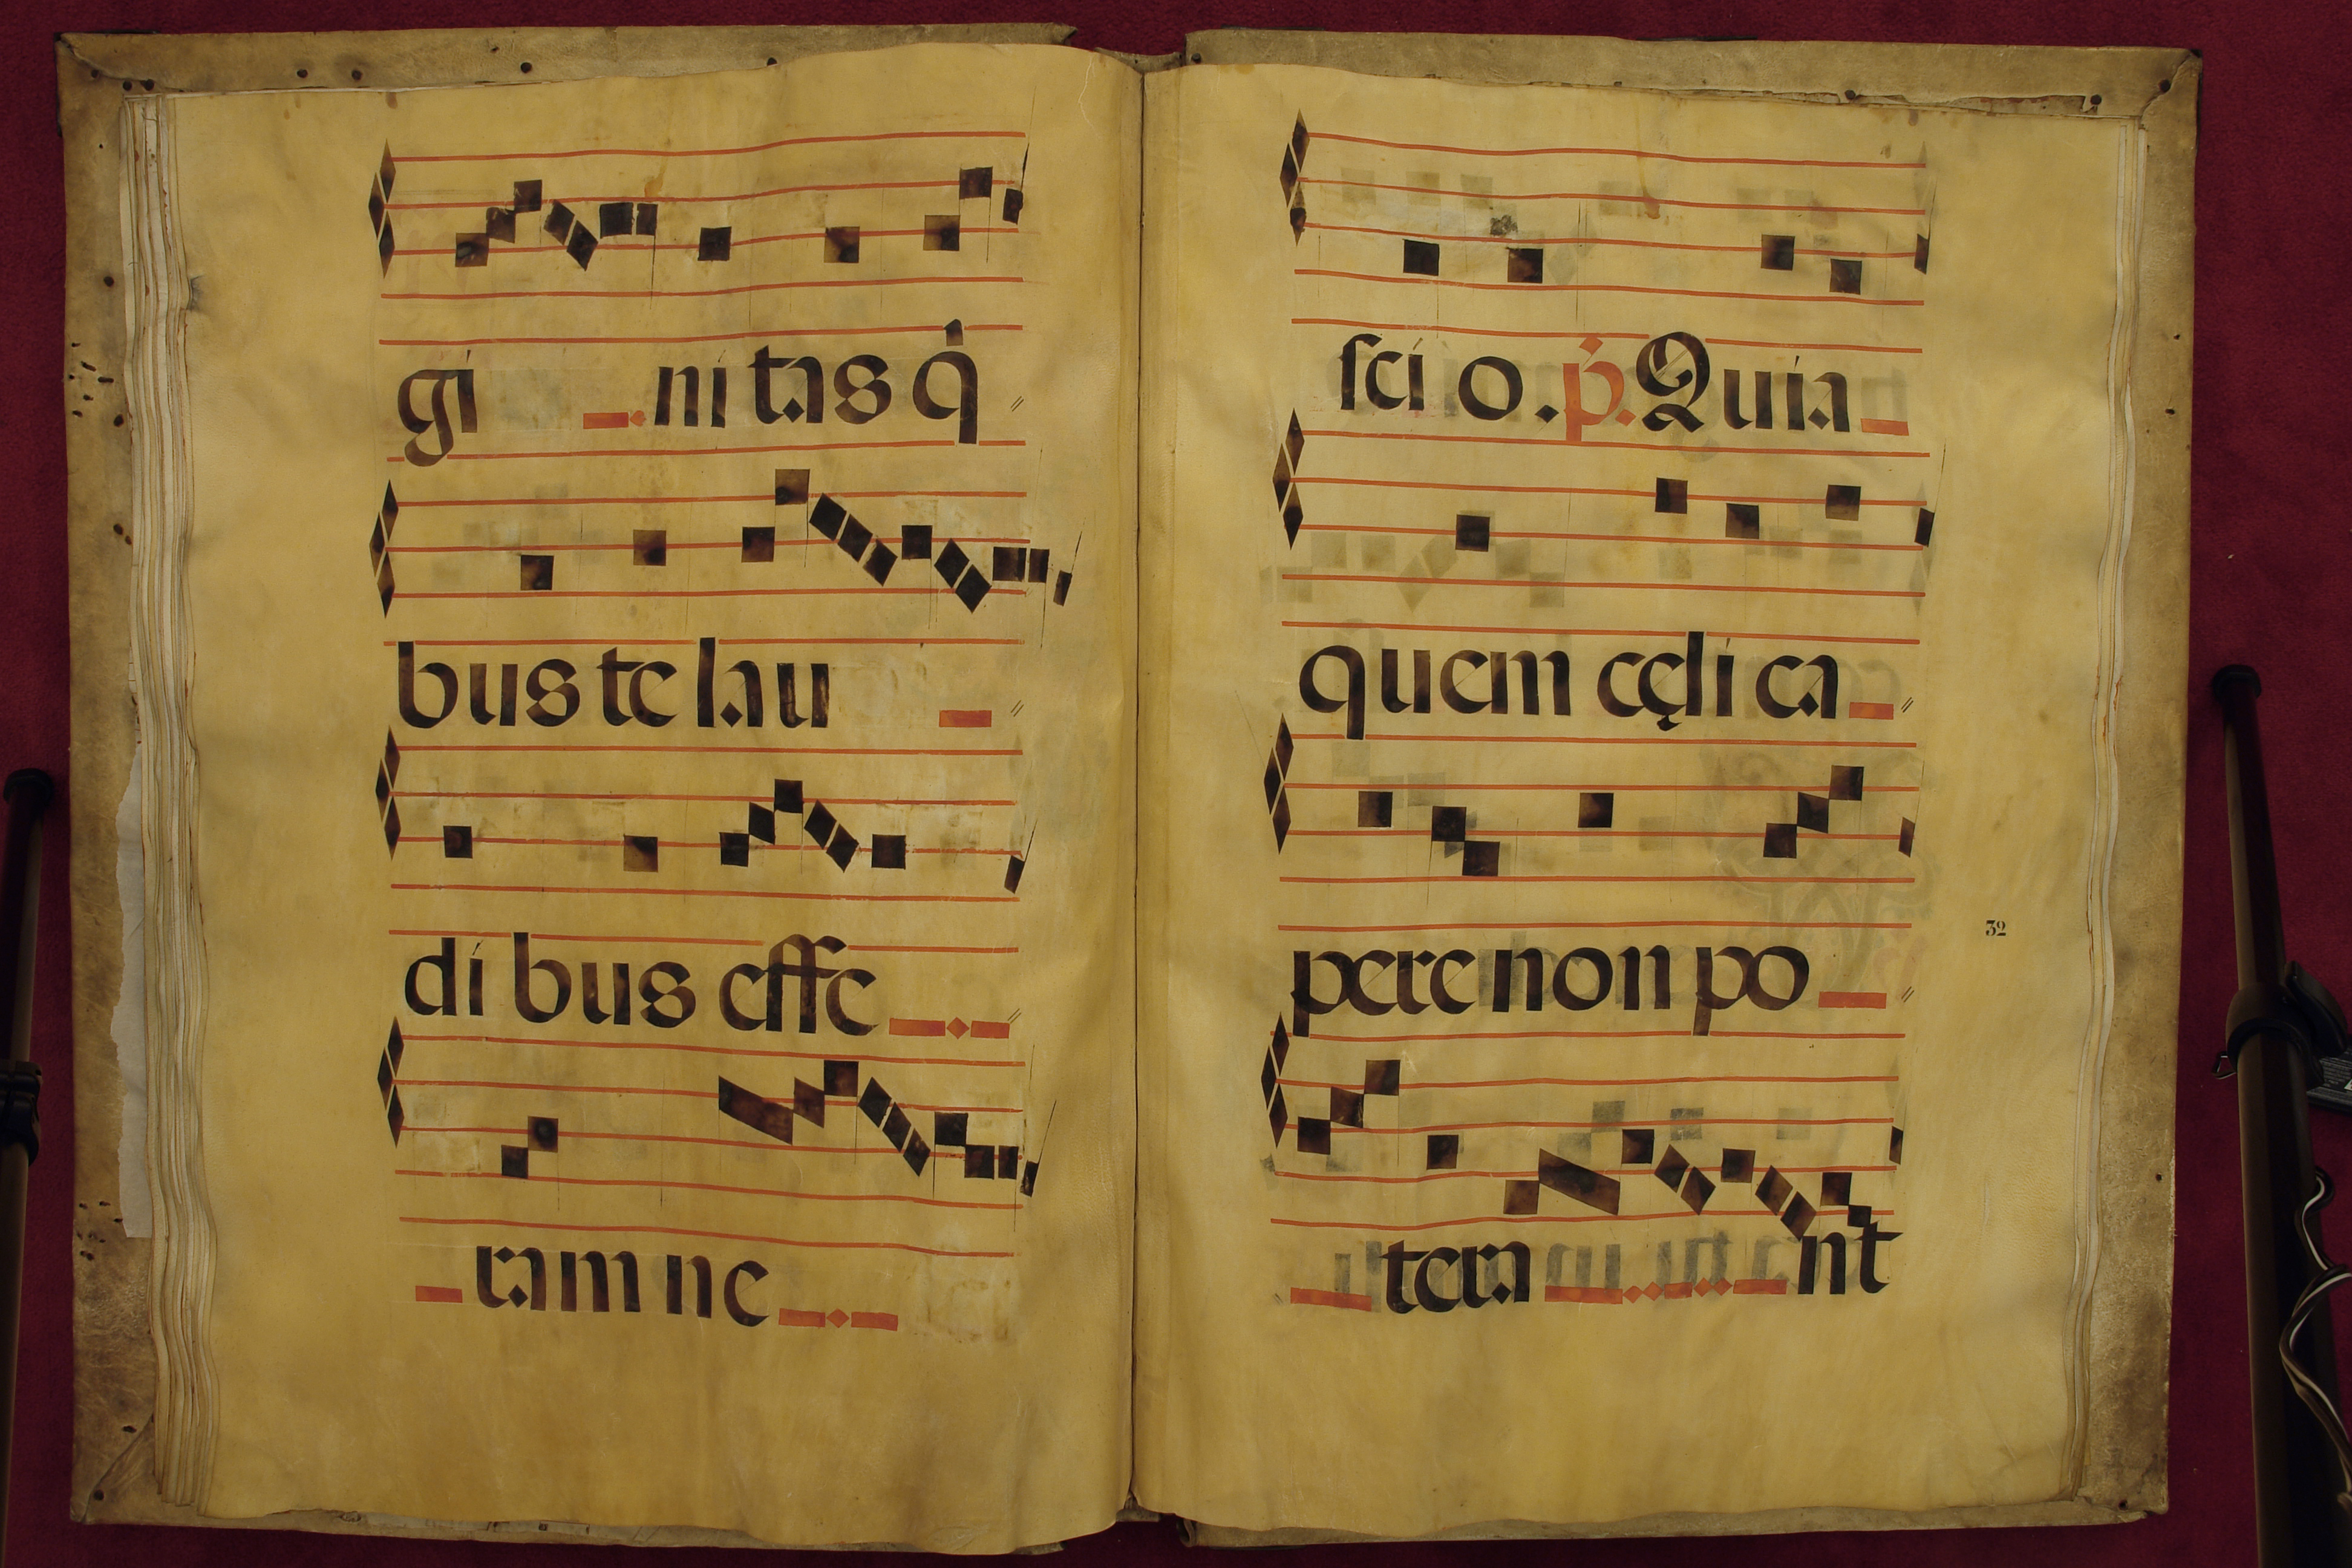 gi ni tas q̇
bus te lau
di bus effe
ram ne
sci o. p̓. Quia
quem cęli ca
pere non po
32
tera nt